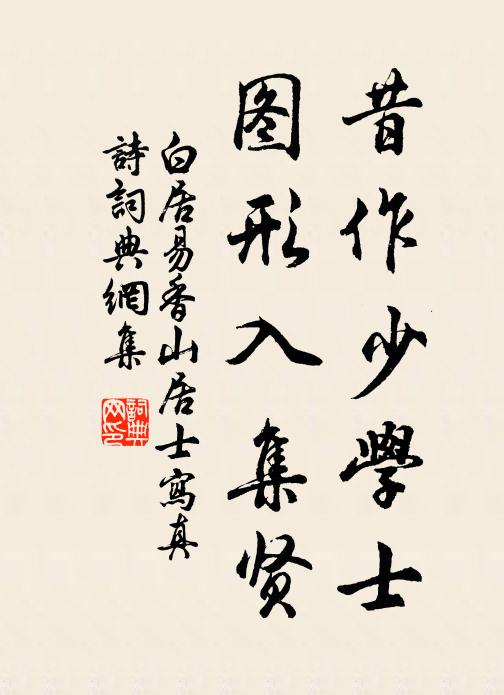 昔作少學士
图形入集贤
白居易香山居士寫真
詩詞典網集
詞典网印